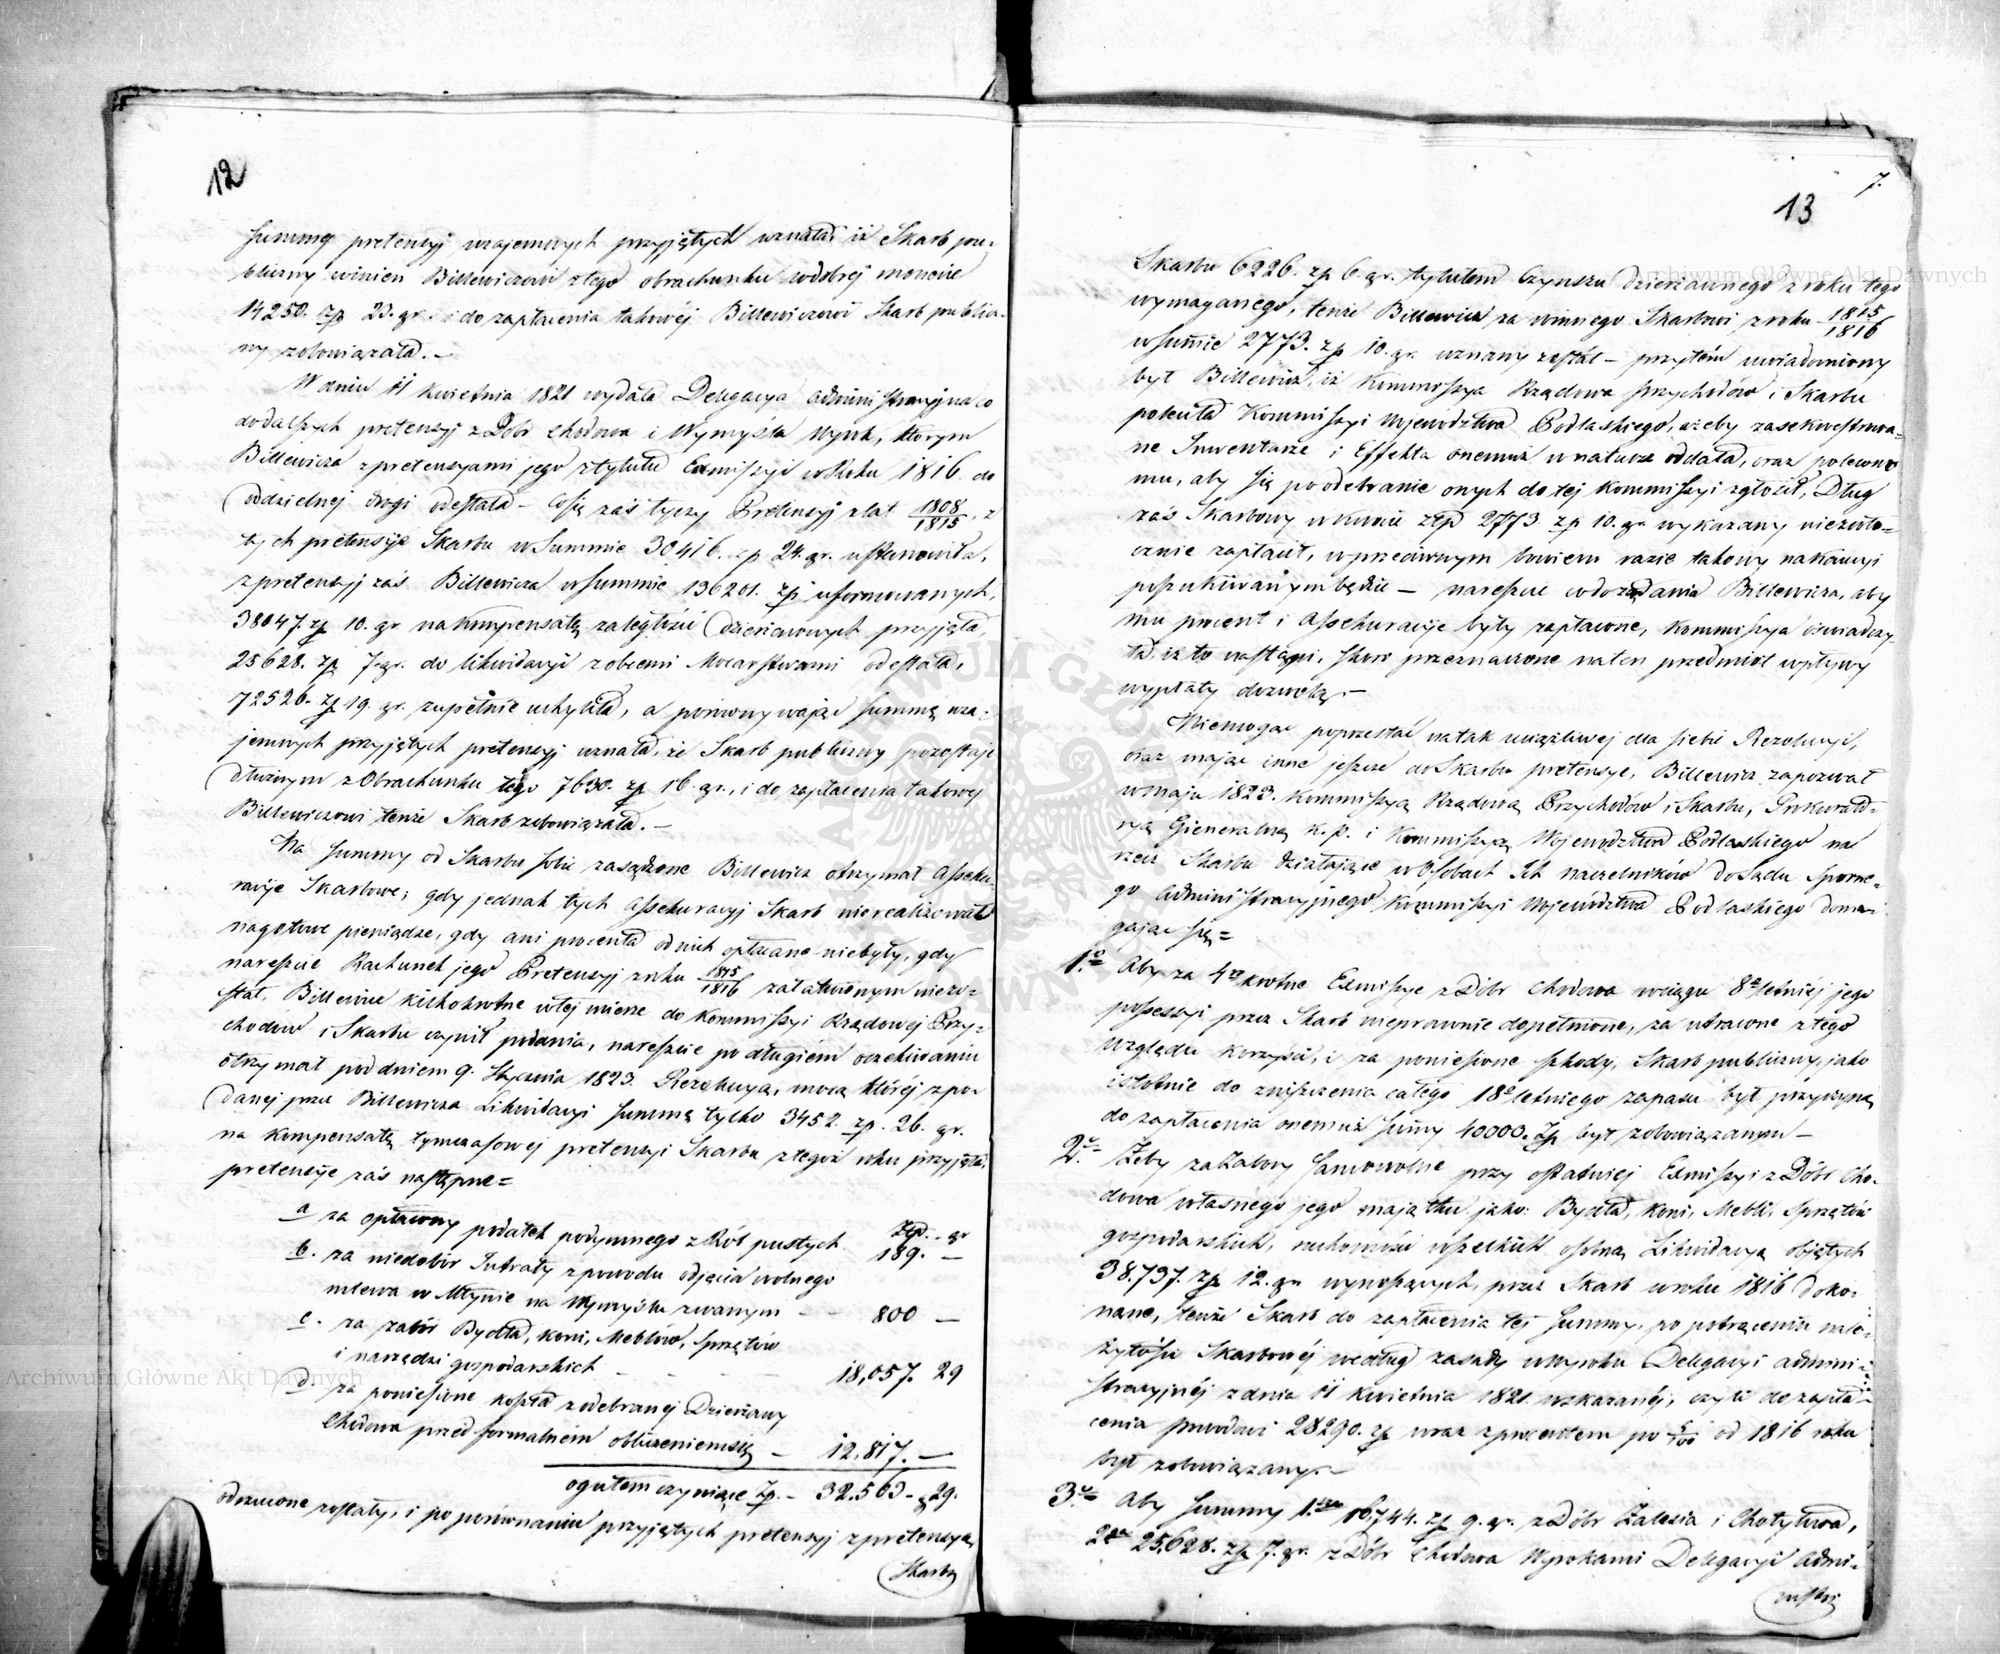 12
summę pretensyj wzajemnych przyjętych uznała, iż Skarb pu-
bliczny winien Billewiczowi z tego obrachunku w dobrej monecie
14250. zp 23. gr. i do zapłacenia takowéj Billewiczowi Skarb publicz-
ny zobowiązała. –
W dniu 11 Kwietnia 1821 wydała Delegacya Administracyjna co
do dalszych pretensyj z Dóbr Chodowa i Wymysła Wyrok, którym
Billewicza z pretensyami jego z tytułu Exmissyi w Roku 1816. do
oddzielnej drogi odesłała – Co się zaś tyczy Pretensyj z lat 1808/1815, z
tych pretensye Skarbu w Summie 30416. zp 24. gr. ustanowiła,
z pretensyj zaś Billewicza w summie 136201. zp uformowanych,
38047. zp 10. gr na kompensatę zaległości Dzierżawnych przyjęła,
25628. zp 7. gr. do likwidacyi z obcemi Mocarstwami odesłała,
72526. zp 19. gr. zupełnie uchyliła, a porównywając summę wza-
jemnych przyjętych pretensyj uznała, że Skarb publiczny pozostaje
Dłużnym z Obrachunku tego 7630. zp 16. gr., i do zapłacenia takowej
Billewiczowi tenże Skarb zobowiązała. –
Na summy od Skarbu sobie zasądzone Billewicz otrzymał Asseku-
racye Skarbowe; gdy jednak tych Assekuracyj Skarb nierealizował
na gotowe pieniądze, gdy ani procenta od nich opłacane niebyły, gdy
nareszcie Rachunek jego Pretensyj z roku 1815/1816 załatwionym niezo-
stał, Billewicz kilkokrotne w tej mierze do Kommissyi Rządowej Przy-
chodów i Skarbu czynił podania, nareszcie po długiém oczekiwaniu
otrzymał pod dniem 9. Stycznia 1823. Rezolucyą, mocą któréj z po-
danej przez Billewicza Likwidacyi summę tylko 3452. zp. 26. gr.
na kompensatę tymczasowej pretensyi Skarbu z tegoż roku przyjęła,
pretensye zaś następne =
a za opłacony podatek podymnego z Ról pustych Złp. gr 189. –
b. za niedobór Intraty z powodu odjęcia wolnego
mlewa w Młynie na Wymyślu zwanym – – 800 –
c. za zabór Bydła, koni, Meblów, sprzętów
i narzędzi gospodarskich – – – – 18,057. 29
d. za poniesione koszta z odebranej Dzierżawy
Chodowa przed formalném obliczeniem się – 12,817. –
ogułem czyniące Zp. – 32.563 – g 29.
odrzucone zostały, i po porównaniu przyjętych pretensyj z pretensyą
Skarbu
7.
13
Skarbu 6226. zp 6. gr. tytułem Czynszu Dzierżawnego z roku tego
wymaganego, tenże Billewicz za winnego Skarbowi z roku 1815/1816
w summie 2773. zp 10. gr. uznany został – przytém uwiadomiony
był Billewicz, iż Kommissya Rządowa Przychodów i Skarbu
poleciła Kommissyi Województwa Podlaskiego, ażeby zasekwestrowa-
ne Inwentarze i Effekta onemuż w naturze oddała, oraz polecono
mu, aby się po odebranie onych do tej Kommissyi zgłosił, Dług
zaś Skarbowy w kwocie złp 2773. zp 10. gr. wykazany niezwło-
cznie zapłacił, w przeciwnym bowiem razie takowy na kaucyi
poszukiwanym będzie – nareszcie co do żądania Billewicza, aby
mu procent i Assekuracye były zapłacone, Kommissya oświadczy-
ła, iż to nastąpi, skoro przeznaczone na ten przedmiot wpływy
wypłaty dozwolą. –
Niemogąc poprzestać na tak uciążliwej dla siebie Rezolucyi,
oraz mając inne jeszcze do Skarbu pretensye, Billewicz zapozwał
w maju 1823. Kommissyą Rządową Przychodów i Skarbu, Prokurato-
ryą Generalną K. P. i Kommissyą Województwa Podlaskiego na
rzecz Skarbu działające w Osobach Ich naczelników do Sądu Sporne-
go Administracyjnego Kommissyi Województwa Podlaskiego doma-
gając się =
1.o Aby za 4ro krotne Exmissye z Dóbr Chodowa w ciągu 8o letniej jego
possessyi przez Skarb nieprawnie dopełnione, za utracone z tego
względu korzyści, i za poniesione szkody, Skarb publiczny, jako
istotnie do zniszczenia całego 18o letniego zapasu był przyczyną
do zapłacenia onemuż summy 40000. Zp był zobowiązanym –
2.o Żeby za zabory samowolne przy ostatniej Exmissyi z Dóbr Cho-
dowa własnego jego majątku jako: Bydła, koni, Mebli, sprzętów
gospodarskich, ruchomości wszelkich osobną Likwidacyą objętych
38.737. zp 12. gr. wynoszących, przez Skarb w roku 1816 Doko-
nane, tenże Skarb do zapłacenia tej summy, po potrąceniu nale-
żytości Skarbowej według zasady w Wyroku Delegacyi Admini-
stracyjnéj z dnia 11 Kwietnia 1821. wskazanéj, czyli do zapła-
cenia powodowi 28290. zp wraz z procentem po 5/100 od 1816 roku
był zobowiązany. –
3.o Aby summy 1.sza 16,744. zp 9. gr. z Dóbr Zalesia i Chotyłowa,
2ga 25,628. zp 7. gr. z Dóbr Chodowa Wyrokami Delegacyi Admi-
nistra
Archiwum Główne Akt Dawnych
Archiwum Główne Akt Dawnych
ARCHIWUM GŁÓWNE